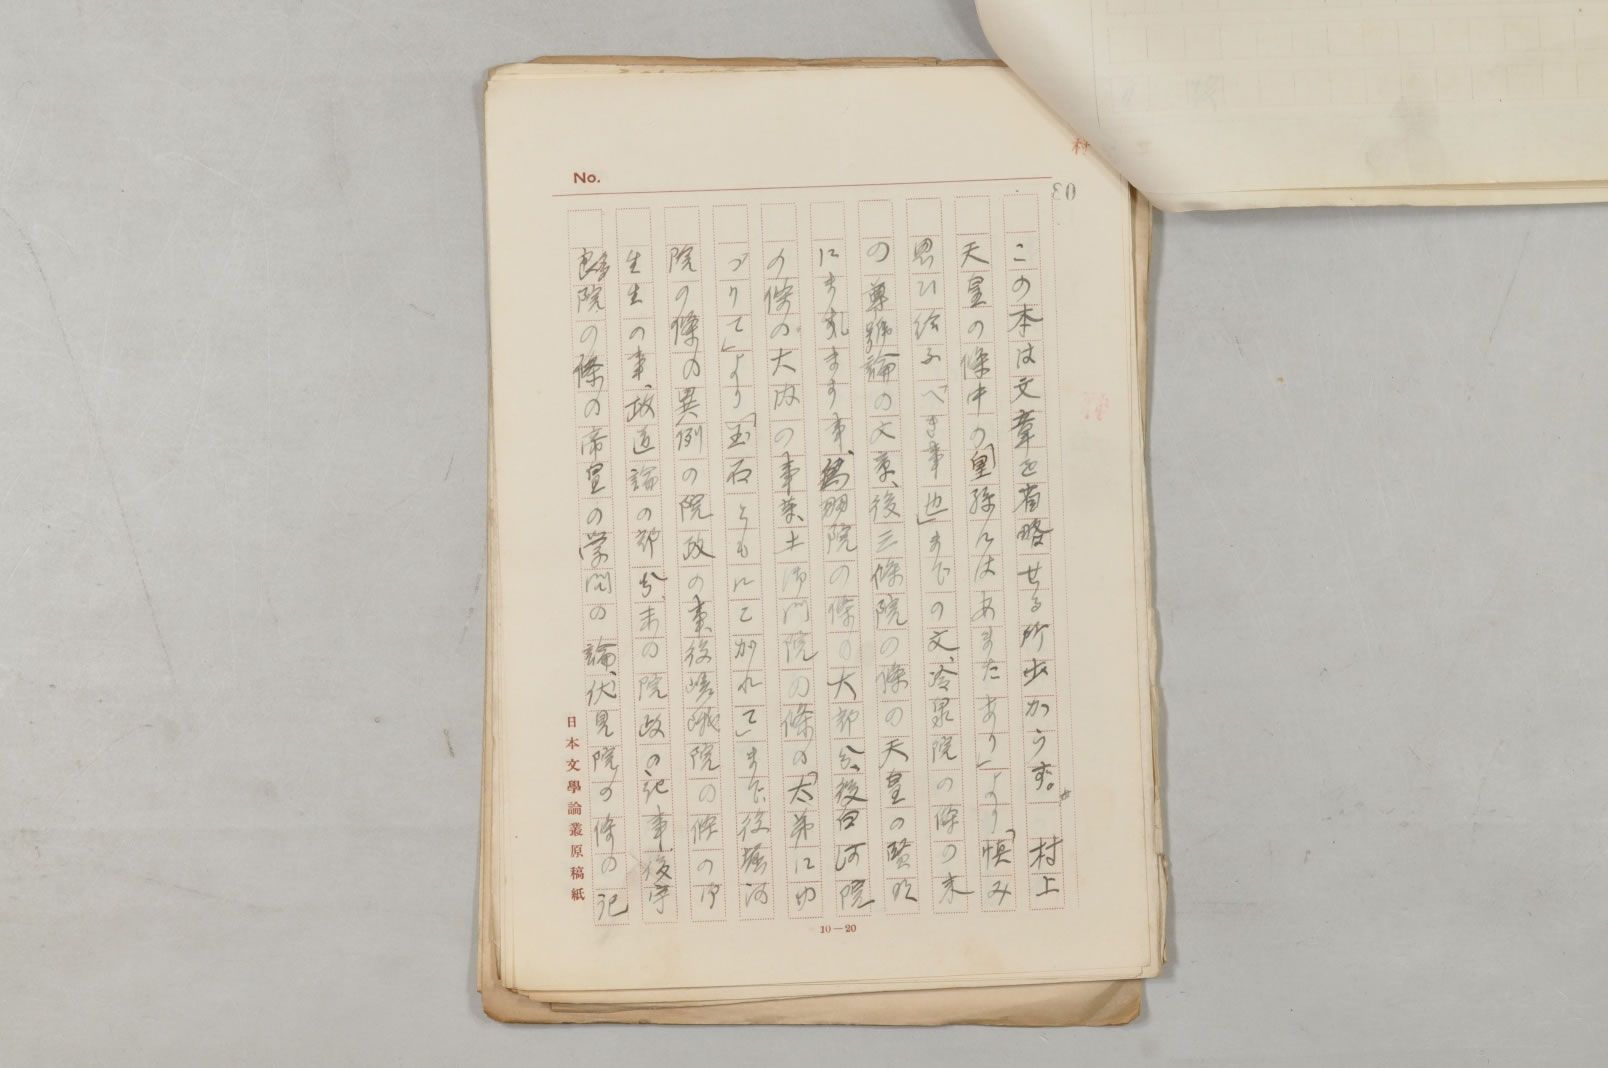 No.
この本は文章を省略せる所少からず。 村上
天皇の條中の「皇孫はあまたあり」より「慎み
思ひ給ふべき事也」までの文、冷泉院の條の末
の尊號論の文章、後三條院の條の天皇の賢
にましますす事、鳥羽院の條の大部分、後白河院
の條の大内の事業、土御門院の條の「太弟にゆ
づりて」より「玉石ともにこがれて」まで、後堀河
院の條の異例の院政の事、後嵯峨院の條の
生の事、政道論の部分、末の院政の記事、後宇
多院の條の帝皇の学問の論、伏見院の條の記
日本文學論叢原稿紙
10—20